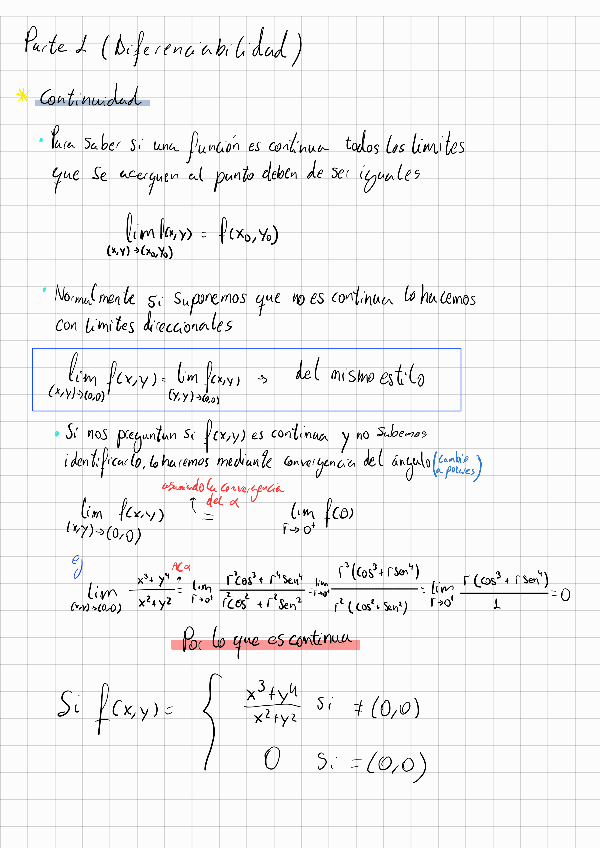 Parte 1 (Diferenciabilidad)
* Continuidad
• Para saber si una función es continua todos los limites
que se acerquen al punto deben de ser iguales
lim f(x,y) = f(x₀,y₀)
(x,y)→(x₀,y₀)
• Normalmente si suponemos que no es continua lo hacemos
con limites direccionales
lim f(x,y) = lim f(x,y) → del mismo estilo
(x,y)→(0,0) (y,y)→(0,0)
• Si nos preguntan si f(x,y) es continua y no sabemos
identificarlo, lo haremos mediante convergencia del ángulo (cambio
a polares)
asumiendo la convergencia
↑ del α
lim f(x,y) = lim f(0)
(x,y)→(0,0) r→0⁺
ej
lim (x³+y⁴)/(x²+y²) =^{ACα} lim (r³cos³ + r⁴sen⁴)/(r²cos² + r²sen²) = lim r³(cos³ + r sen⁴)/r²(cos² + sen²) = lim r(cos³ + r sen⁴)/1 = 0
(x,y)→(0,0) r→0⁺ r→0⁺ r→0⁺
Por lo que es continua
Si f(x,y) = { (x³+y⁴)/(x²+y²) si ≠ (0,0)
0 si = (0,0)